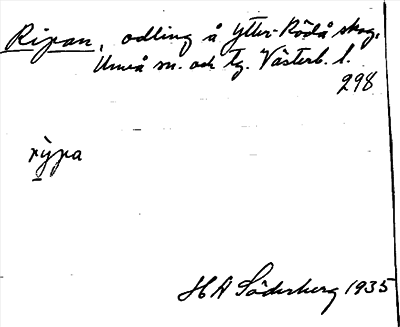 Ripan, odling å Ytter-Rödå skog,
Umeå sn. och tg. Västerb. l.
298
rỳpa
HA Söderberg 1935